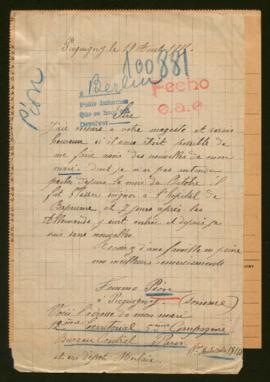 Picquigny le 19 Août 191
100881
à Berlin
Fecho
c.a.e.
Péon
Sire
J'ai recours a votre majesté et serais
heureuse si il vous était possible de
me faire avoir des nouvelles de mon
mari dont je n'ai pas entendu
parler depuis le mois d'Octobre il
fut blessé soigné à l'hôpital de
Bapaume et jours après les
Allemands y sont entrés et depuis je
suis sans nouvelles.
Recevez d'une famille en peine
nos meilleurs remerciements
Femme Péon
à Picquigny (Somme)
Voici l'adresse de mon mari
Territorial Compagnie
Bureau Central Paris
et au dépôt